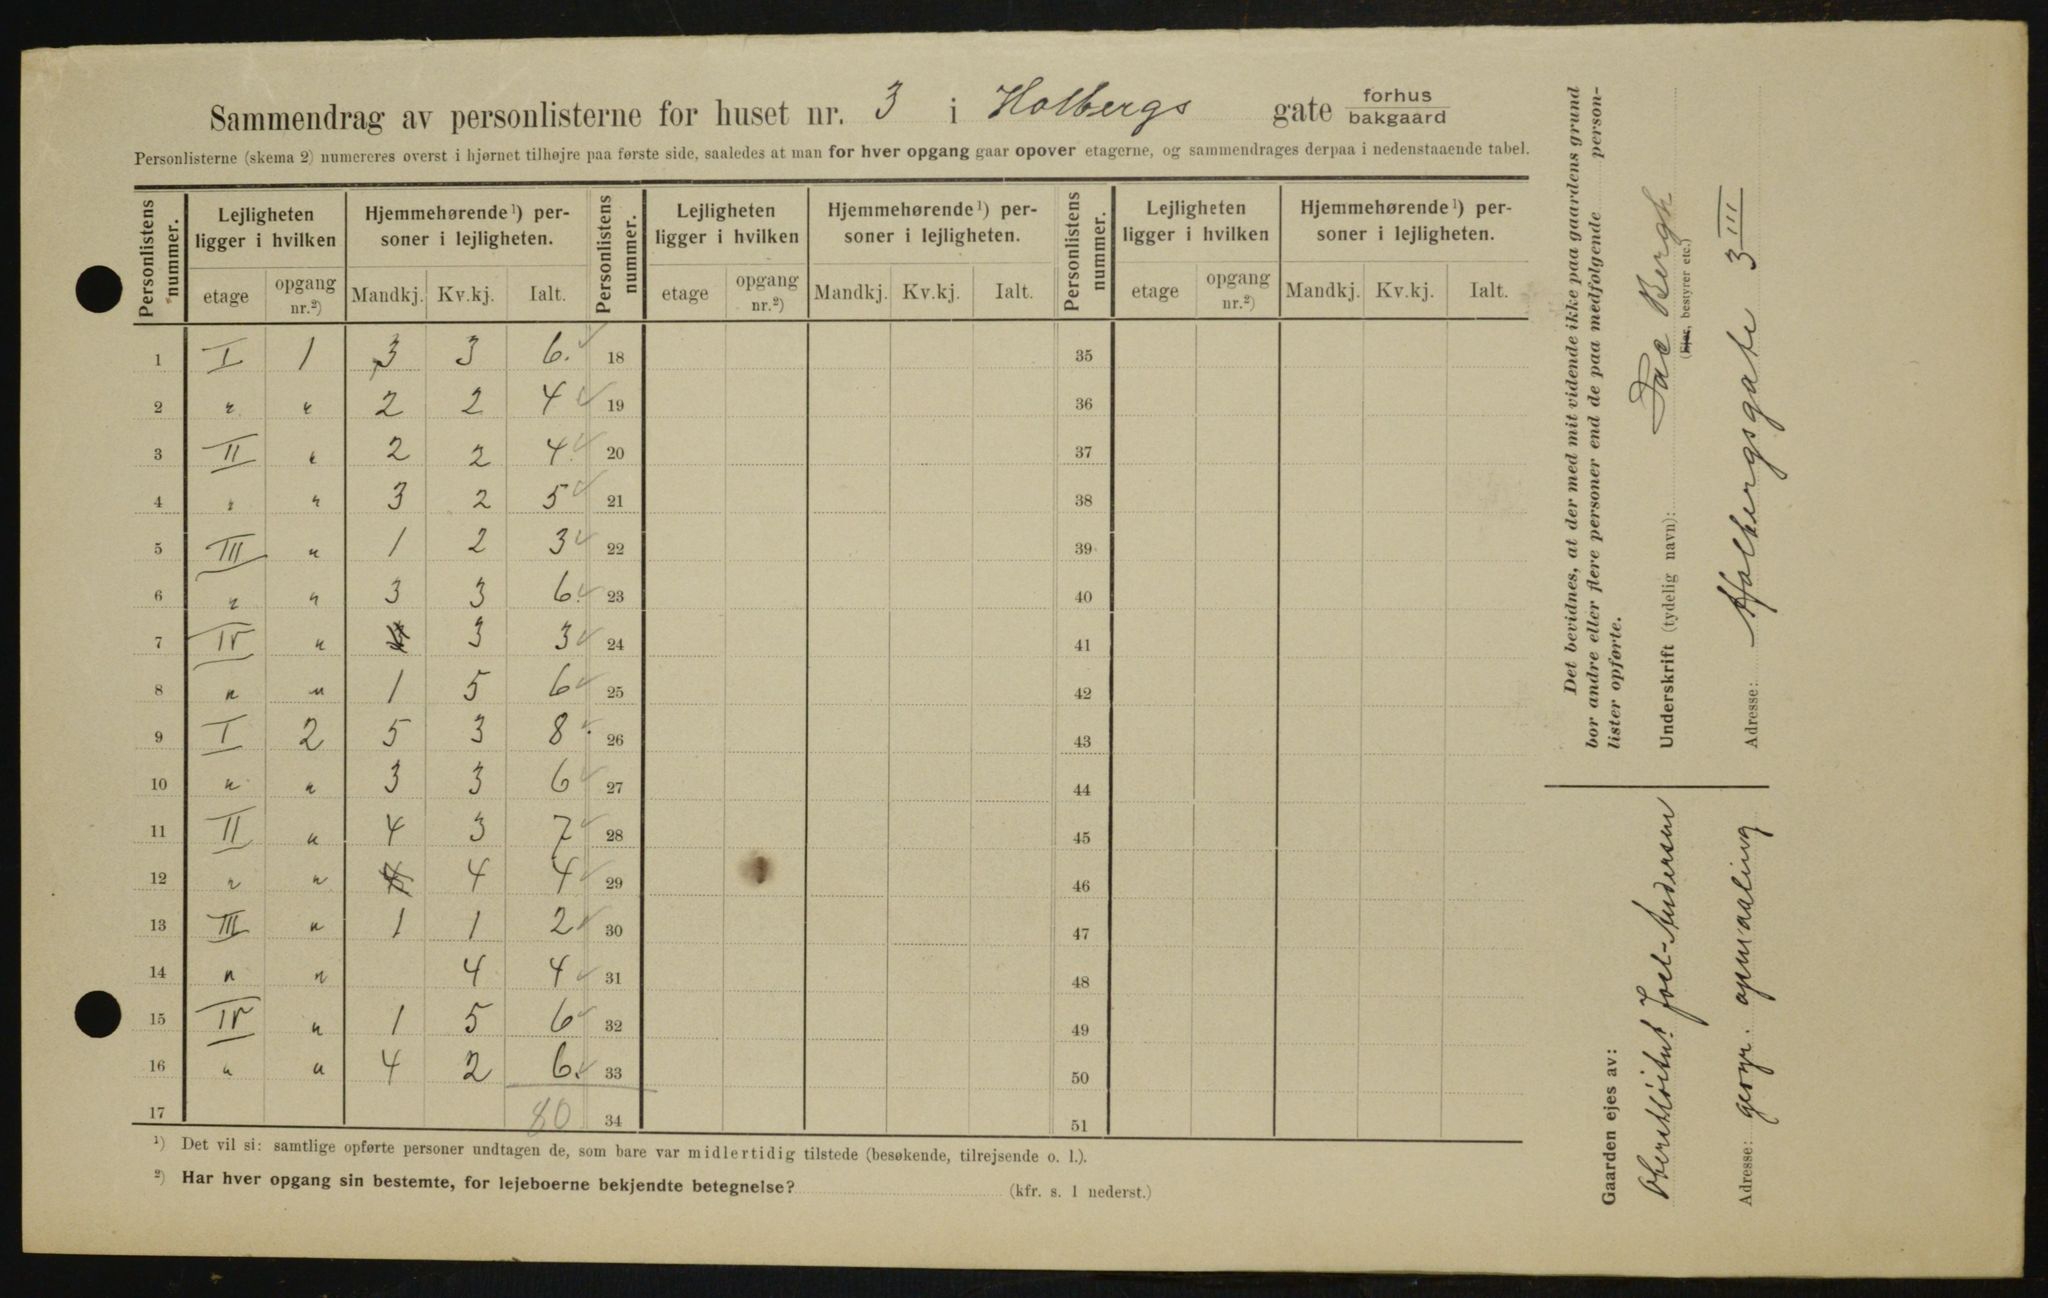 Sammendrag av personlisterne for huset nr. 3 i Holbergs gate forhus
bakgaard
Personlisterne (skema 2) numereres øverst i hjørnet tilhøjre paa første side, saaledes at man for hver opgang gaar opover etagerne, og sammendrages derpaa i nedenstaaende tabel.
Personlistens nummer. Lejligheten ligger i hvilken Hjemmehørende ¹) personer i lejligheten. Personlistens nummer. Lejligheten ligger i hvilken Hjemmehørende ¹) personer i lejligheten. Personlistens nummer. Lejligheten ligger i hvilken Hjemmehørende ¹) personer i lejligheten.
etage opgang nr.²) Mandkj. Kv.kj. Ialt. etage opgang nr.²) Mandkj. Kv.kj. Ialt. etage opgang nr.²) Mandkj. Kv.kj. Ialt.
1 I 1 3 3 6. 18 35
2 " " 2 2 4 19 36
3 II " 2 2 4 20 37
4 " " 3 2 5 21 38
5 III " 1 2 3 22 39
6 " " 3 3 6. 23 40
7 IV " 3 3 24 41
8 " " 1 5 6 25 42
9 I 2 5 3 8 26 43
10 " " 3 3 6 27 44
11 II " 4 3 7 28 45
12 " " 4 4 29 46
13 III " 1 1 2 30 47
14 " " 4 4 31 48
15 IV " 1 5 6 32 49
16 " " 4 2 6. 33 50
17 80 34 51
¹) Det vil si: samtlige opførte personer undtagen de, som bare var midlertidig tilstede (besøkende, tilrejsende o. l.).
²) Har hver opgang sin bestemte, for lejeboerne bekjendte betegnelse? (kfr. s. 1 nederst.)
Det bevidnes, at der med mit vidende ikke paa gaardens grund
bor andre eller flere personer end de paa medfølgende person-
lister opførte.
Underskrift (tydelig navn): Bergh
(Ejer, bestyrer etc.)
Adresse: Holbergsgate 3 III
Gaarden ejes av:
Oberstløitnt Joel-Andersen
Adresse: geogr. opmaaling